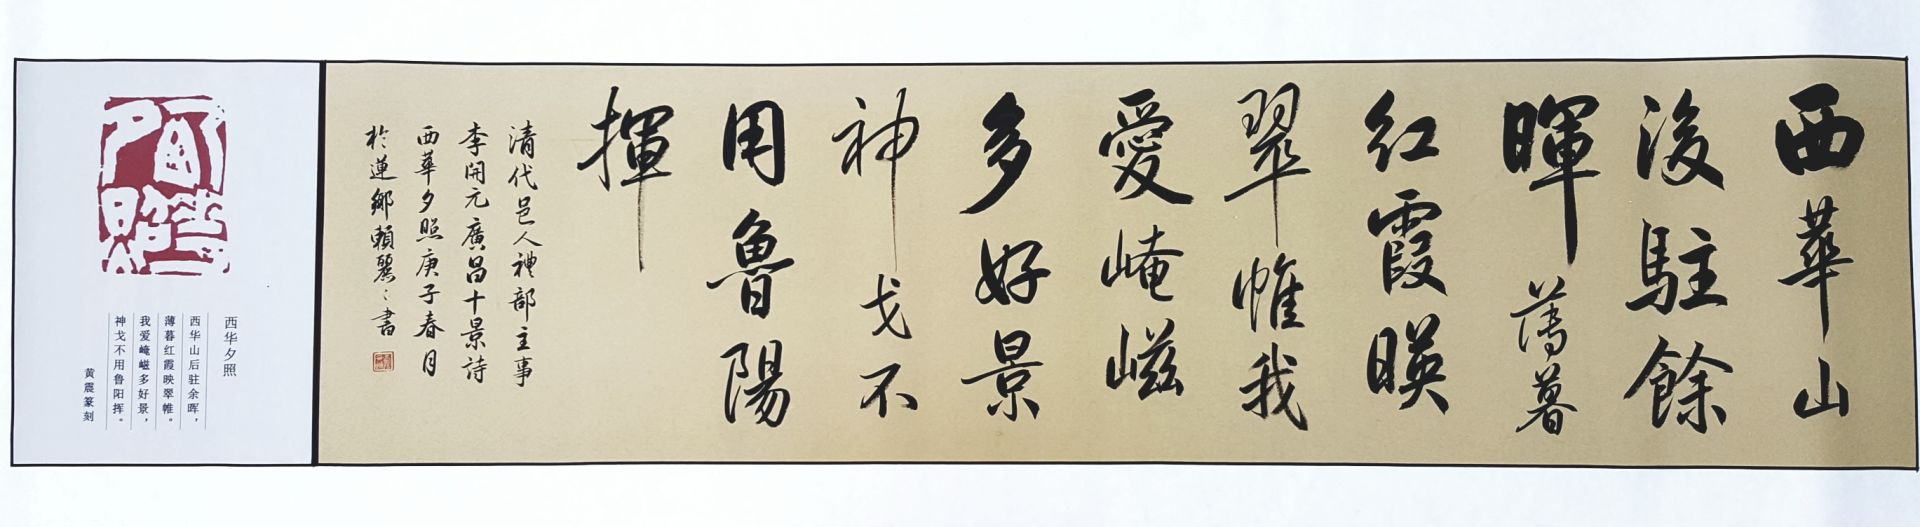 西華山
後駐餘
暉薄暮
紅霞暎
翠帷我
愛崦嵫
多好景
神戈不
用魯陽
揮
清代邑人禮部主事
李開元廣昌十景詩
西華夕照庚子春月
於蓮鄉賴麗〻書
西华夕照
西华山后驻余晖，
薄暮红霞映翠帷。
我爱崦嵫多好景，
神戈不用鲁阳挥。
黄震篆刻